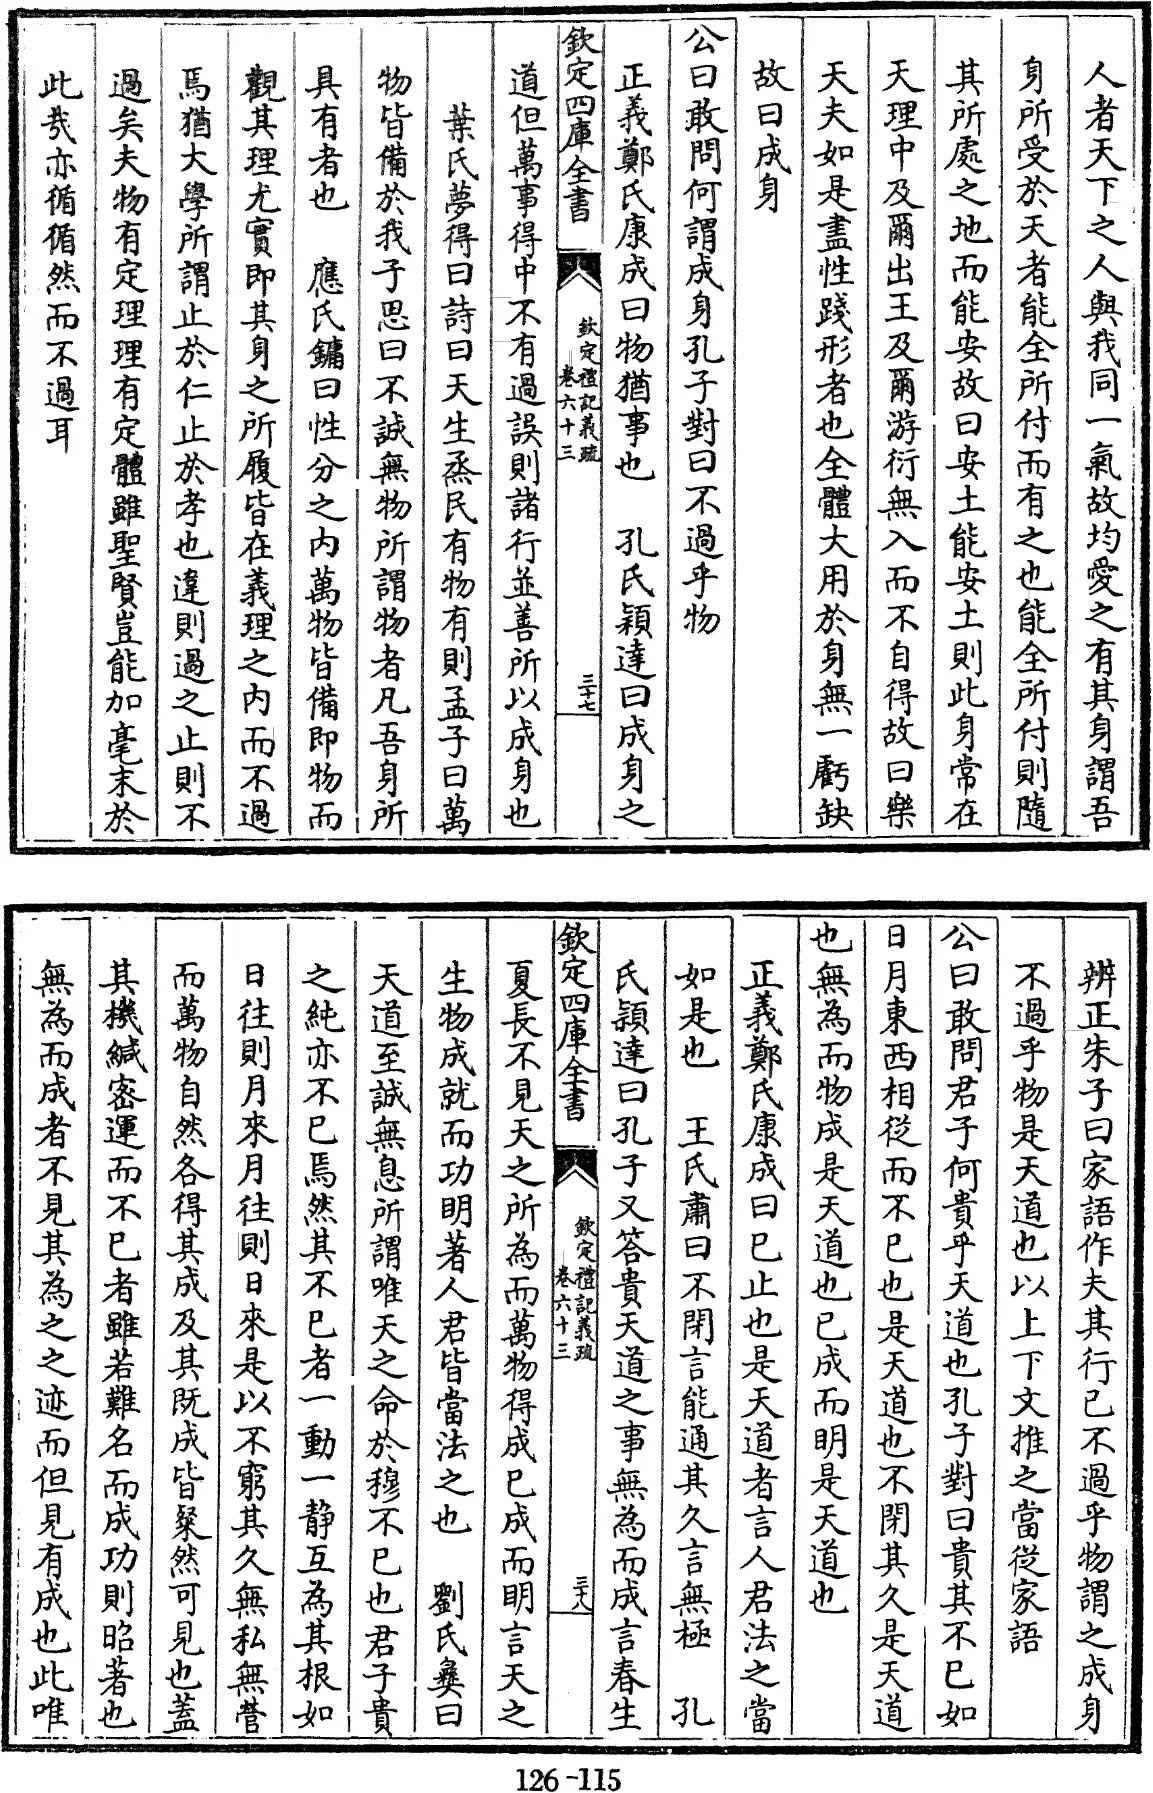 人者天下之人與我同一氣故均愛之有其身謂吾
身所受於天者能全所付而有之也能全所付則隨
其所處之地而能安故曰安土能安土則此身常在
天理中及爾出王及爾游衍無入而不自得故曰樂
天夫如是盡性踐形者也全體大用於身無一虧缺
故曰成身
公曰敢問何謂成身孔子對曰不過乎物
正義鄭氏康成曰物猶事也 孔氏穎達曰成身之
欽定四庫全書 欽定禮記義疏 卷六十三 三十七
道但萬事得中不有過誤則諸行並善所以成身也
葉氏夢得曰詩曰天生烝民有物有則孟子曰萬
物皆備於我子思曰不誠無物所謂物者凡吾身所
具有者也 應氏鏞曰性分之内萬物皆備即物而
觀其理尤實即其身之所履皆在義理之内而不過
焉猶大學所謂止於仁止於孝也違則過之止則不
過矣夫物有定理理有定體雖聖賢豈能加毫末於
此哉亦循循然而不過耳
辨正朱子曰家語作夫其行已不過乎物謂之成身
不過乎物是天道也以上下文推之當從家語
公曰敢問君子何貴乎天道也孔子對曰貴其不已如
日月東西相從而不已也是天道也不閉其久是天道
也無為而物成是天道也已成而明是天道也
正義鄭氏康成曰已止也是天道者言人君法之當
如是也 王氏肅曰不閉言能通其久言無極 孔
氏穎達曰孔子又答貴天道之事無為而成言春生
欽定四庫全書 欽定禮記義疏 卷六十三 三十八
夏長不見天之所為而萬物得成已成而明言天之
生物成就而功明著人君皆當法之也 劉氏彝曰
天道至誠無息所謂唯天之命於穆不已也君子貴
之純亦不已焉然其不已者一動一静互為其根如
日往則月來月往則日來是以不窮其久無私無營
而萬物自然各得其成及其既成皆粲然可見也蓋
其機緘密運而不已者雖若難名而成功則昭著也
無為而成者不見其為之之迹而但見有成也此唯
126-115